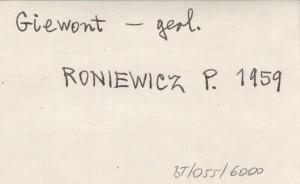 Giewont – geol.
RONIEWICZ P. 1959
BT/055/6000